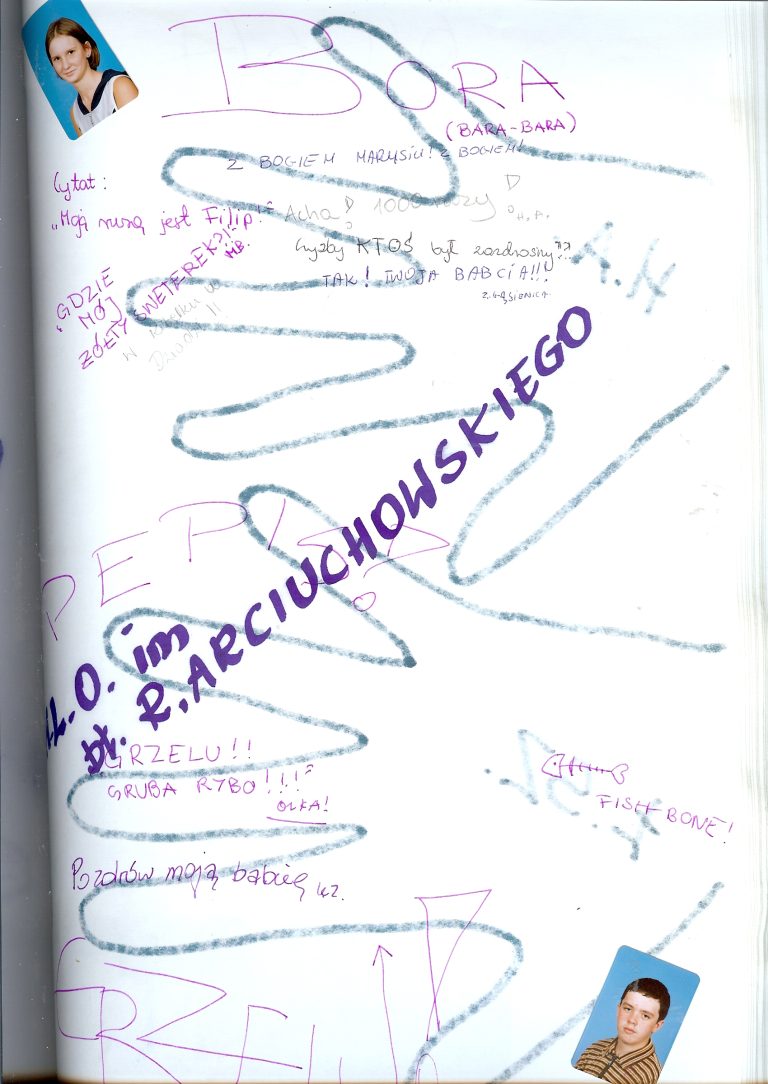 BORA
(BARA-BARA)
Z BOGIEM MARYSIU! Z BOGIEM!
Cytat:
„Moją muzą jest Filip!"
Acha! 1000 razy
H.A.
Czyżby KTOŚ był zazdrosny?!?
TAK! TWOJA BABCIA!!!
Z. GĄSIENICA
GDZIE
MÓJ
ŻÓŁTY SWETEREK?!
M.B.
PEPI
L.O. im
bł. R. ARCIUCHOWSKIEGO
GRZELU!!
GRUBA RYBO!!!
OLKA!
FISHBONE!
Pozdrów moją babcię